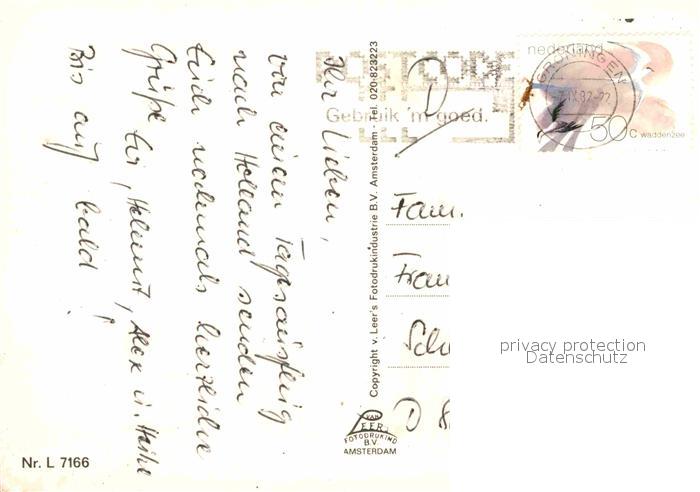 Ihr Lieben,
von einem Tagesausflug
nach Holland senden
Euch nochmals herzliche
Grüße Eir, Helmut, Alex u. Heike
Bis auf bald!
Copyright v. Leer's Fotodrukindustrie B.V. Amsterdam - Tel. 020-823223
POSTCODE
Gebruik 'm goed.
nederland
GRONINGEN
50c waddenzee
D
Fam.
Fran
Sch
D 8
VAN
LEER
FOTODRUKIND
B.V.
AMSTERDAM
privacy protection
Datenschutz
Nr. L 7166